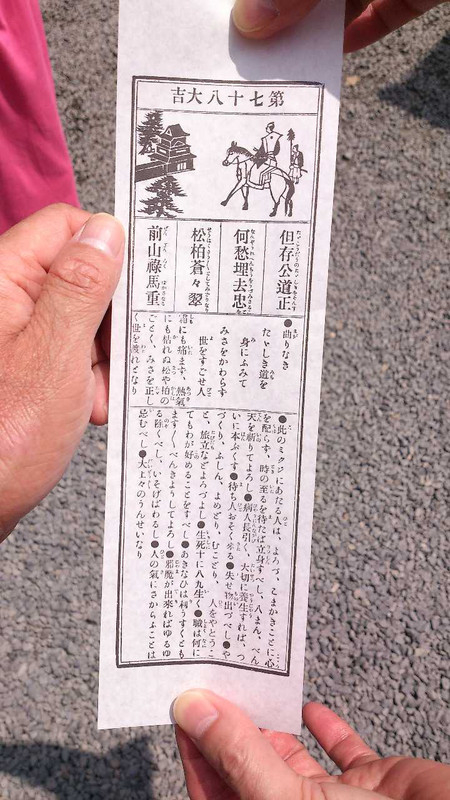 第七十八大吉
但存公道正
何愁理去忠
松柏蒼々翠
前山祿馬重
●曲りなき
たゞしき道を
身にふみて
みさをかわらす
世をすごせ人
霜にも痛まず、熱氣
にも枯れぬ松や柏の
ごとく、みさを正し
く世を渡れとなり
●此のミクジにあたる人は、よろづ、こまかきことに心
を配らず、時の至るを待たば立身すべし、八まん、べん
天を祈りてよろし●病人長引く、大切に養生すれば、つ
いに本ぷくす●待ち人おそく來る●失せ物出づべし●や
づくり、ふしん、よめどり、むこどり、人をやとうこ
と、旅立などよろづよし●生死十に八九生く●職は何に
てもわが好めることをすべし●あきなひは利うすくとも
ますく べんきようしてよろし●邪魔が出來ればゆるゆ
る除くべし、いそげばわるし●人の氣にさからふことは
忌むべし●大上々のうんせいなり